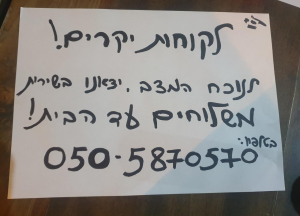 בס"ד
לקוחות יקרים!
לנוכח המצב, יצאנו בשירות
משלוחים עד הבית!
בטלפון:
050-5870570